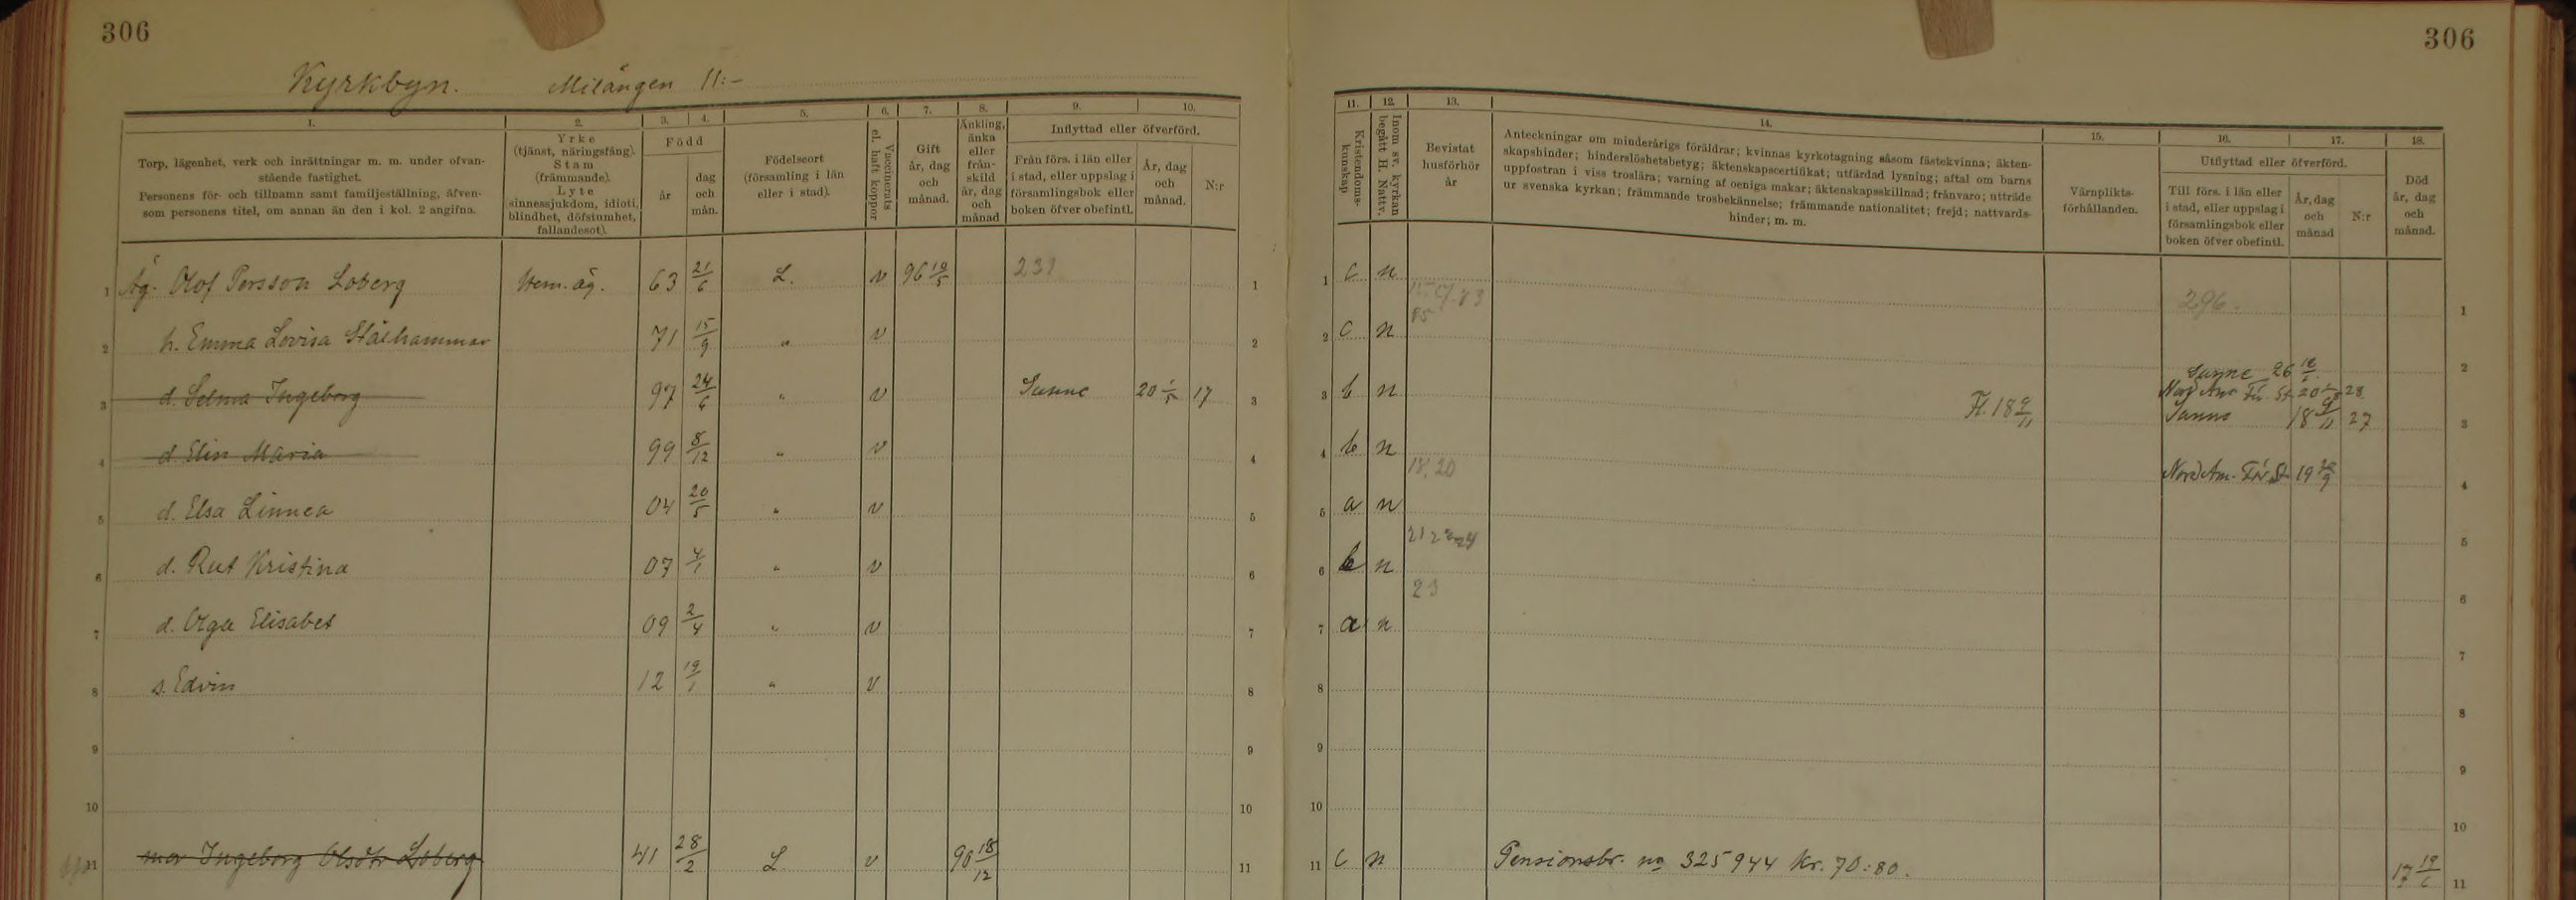 306
306
Kyrkbyn. Milängen 11:-
1. 2. 3. 4. 5. 6. 7. 8. 9. 10.
Torp, lägenhet, verk och inrättningar m. m. under ofvan-
stående fastighet.
Personens för- och tillnamn samt familjeställning, äfven-
som personens titel, om annan än den i kol. 2 angifna.
Yrke
(tjänst, näringsfång).
Stam
(främmande).
Lyte
(sinnessjukdom, idioti,
blindhet, döfstumhet,
fallandesot).
Född
år
dag
och
mån.
Födelseort
(församling i län
eller i stad).
Vaccinerats
el. haft koppor
Gift
år, dag
och
månad.
Änkling,
änka
eller
från-
skild
år, dag
och
månad
Inflyttad eller öfverförd.
Från förs. i län eller
i stad, eller uppslag i
församlingsbok eller
boken öfver obefintl.
År, dag
och
månad.
N:r
11. 12. 13. 14. 15. 16. 17. 18.
Kristendoms-
kunskap
Inom sv. kyrkan
begått H. Nattv.
Bevistat
husförhör
år
Anteckningar om minderårigs föräldrar; kvinnas kyrkotagning såsom fästekvinna; äkten-
skapshinder; hinderslöshetsbetyg; äktenskapscertifikat; utfärdad lysning; aftal om barns
uppfostran i viss troslära; varning af oeniga makar; äktenskapsskillnad; frånvaro; utträde
ur svenska kyrkan; främmande trosbekännelse; främmande nationalitet; frejd; nattvards-
hinder; m. m.
Värnplikts-
förhållanden.
Utflyttad eller öfverförd.
Till förs. i län eller
i stad, eller uppslag i
församlingsbok eller
boken öfver obefintl.
År, dag
och
månad
N:r
Död
år, dag
och
månad.
1 Äg. Olof Persson Loberg Hem.äg. 63 21/6 L. v 96 10/5 231 1 1 c n 296. 1
2 h. Emma Lovisa Stålhammar 71 15/9 " v 2 2 c n 2
Sunne 26
3 d. Selma Ingeborg 97 24/6 " v Sunne 20 1/5 17 3 3 b n Fl. 18 9/11 Nord Am. För. St. 20 28 3
Sunne 18 9/11 27
4 d. Elin Maria 99 8/12 " v 4 4 b n 18. 20 Nord Am. För. St. 19 4
5 d. Elsa Linnea 04 20/5 " v 5 5 a n 5
6 d. Rut Kristina 07 4/1 " v 6 6 b n 23 6
7 d. Olga Elisabet 09 2/4 " v 7 7 a n 7
8 s. Edvin 12 19/1 " v 8 8 8
9 9 9 9
10 10 10 10
11 mor Ingeborg Olsdtr Loberg 41 28/2 L v 90 18/12 11 11 c n Pensionsbr. no 325944 Kr. 70:80. 17 19/6 11